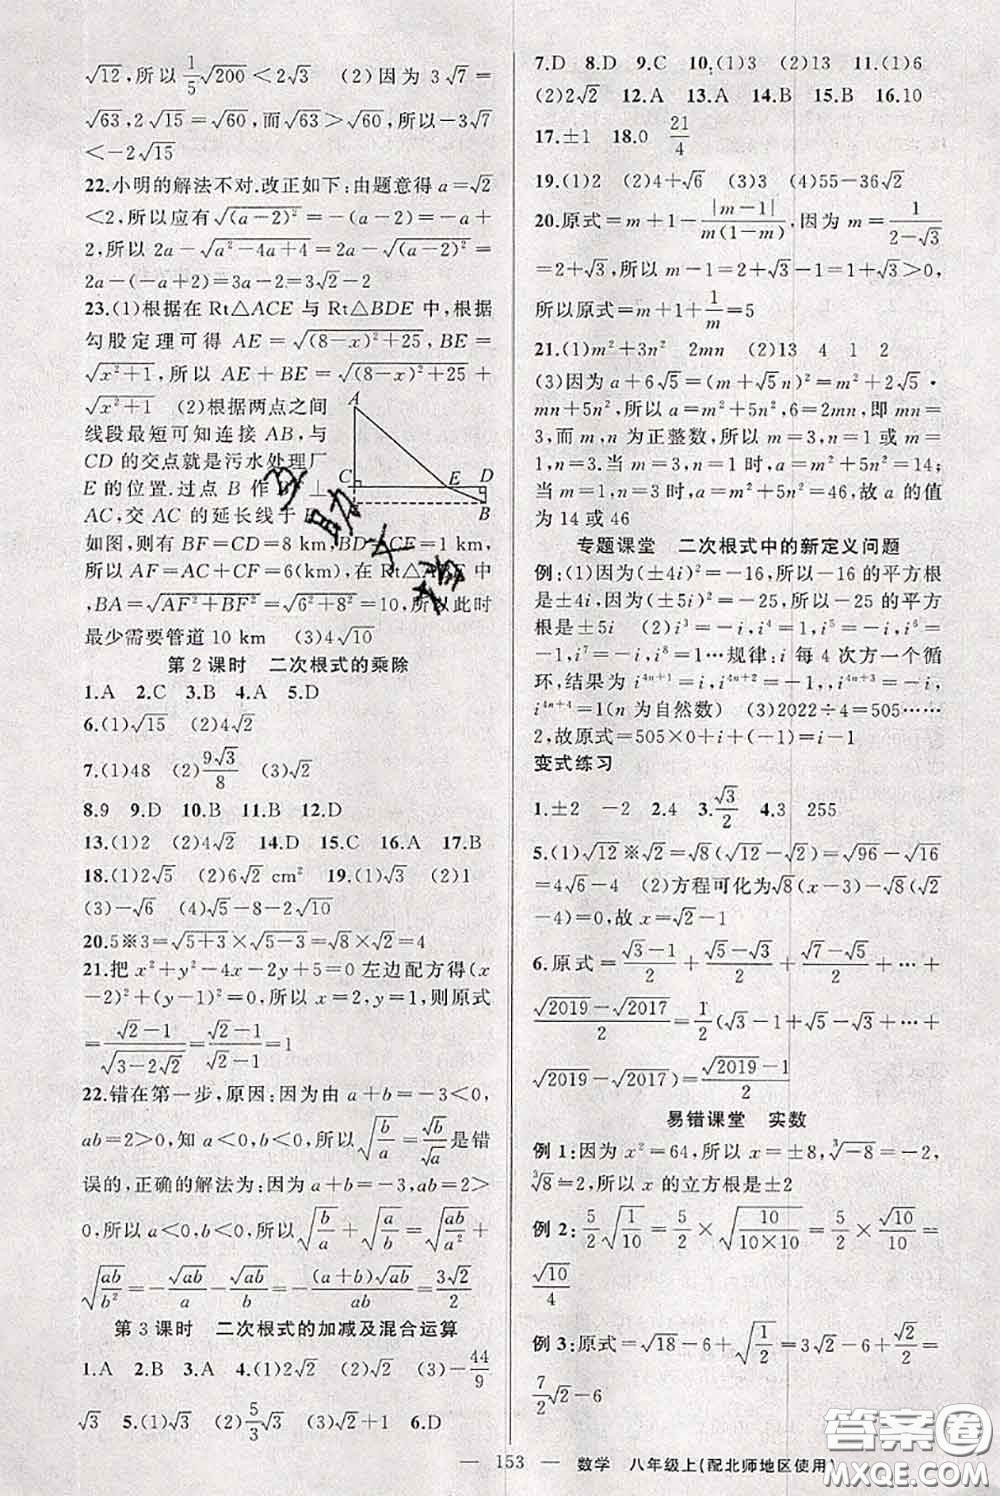 √12,所以 1/5√200<2√3　(2)因为 3√7=
√63,2√15=√60,而√63>√60,所以-3√7
<-2√15
22.小明的解法不对.改正如下:由题意得 a=√2
<2,所以应有√(a-2)²=-(a-2)=-a+
2,所以 2a-√a²-4a+4=2a-√(a-2)²=
2a-(-a+2)=3a-2=3√2-2
23.(1)根据在 Rt△ACE 与 Rt△BDE 中,根据
勾股定理可得 AE=√(8-x)²+25,BE=
√x²+1,所以 AE+BE=√(8-x)²+25+
√x²+1　(2)根据两点之间
线段最短可知连接 AB,与
CD 的交点就是污水处理厂
E 的位置.过点 B 作 ⊥
AC,交 AC 的延长线于
如图,则有 BF=CD=8 km,BD CE=1 km,
所以 AF=AC+CF=6(km),在 Rt△ 中
,BA=√AF²+BF²=√6²+8²=10,所以此时
最少需要管道 10 km　(3)4√10
A
C
E
D
B
第 2 课时　二次根式的乘除
1.A　2.C　3.B　4.A　5.D
6.(1)√15　(2)4√2
7.(1)48　(2)9√3/8　(3)√2
8.9　9.D　10.B　11.B　12.D
13.(1)2　(2)4√2　14.D　15.C　16.A　17.B
18.(1)2√5　(2)6√2 cm²　19.(1)√3　(2)1
(3)-√6　(4)√5-8-2√10
20.5※3=√5+3×√5-3=√8×√2=4
21.把 x²+y²-4x-2y+5=0 左边配方得(x
-2)²+(y-1)²=0,所以 x=2,y=1,则原式
=(√2-1)/√(3-2√2)=(√2-1)/(√2-1)=1
22.错在第一步,原因:因为 a+b=-3<0,
ab=2>0,知 a<0,b<0,所以√(b/a)=√b/√a是错
误的,正确的解法为:因为 a+b=-3,ab=2>
0,所以 a<0,b<0,所以√(b/a)+√(a/b)=√(ab/a²)+
√(ab/b²)=-√ab/a-√ab/b=-(a+b)√ab/ab=3√2/2
第 3 课时　二次根式的加减及混合运算
1.A　2.B　3.A　4.(1)2√2　(2)√2　(3)-44/9
√3　5.(1)√3　(2)5/3√3　(3)√2+1　6.D
7.D　8.D　9.C　10.(1)3　(2)13　11.(1)6
(2)2√2　12.A　13.A　14.B　15.B　16.10
17.±1　18.0　21/4
19.(1)2　(2)4+√6　(3)3　(4)55-36√2
20.原式=m+1-|m-1|/m(1-m),因为 m=1/(2-√3)
=2+√3,所以 m-1=2+√3-1=1+√3>0,
所以原式=m+1+1/m=5
21.(1)m²+3n²　2mn　(2)13　4　1　2
(3)因为 a+6√5=(m+√5n)²=m²+2√5·
mn+5n²,所以 a=m²+5n²,6=2mn,即 mn=
3,而 m,n 为正整数,所以 m=1,n=3 或 m=
3,n=1,当 m=3,n=1 时,a=m²+5n²=14;
当 m=1,n=3 时,a=m²+5n²=46,故 a 的值
为 14 或 46
专题课堂　二次根式中的新定义问题
例:(1)因为(±4i)²=-16,所以-16 的平方根
是±4i;因为(±5i)²=-25,所以-25 的平方
根是±5i　(2)i³=-i,i⁴=1,i⁵=i,i⁶=-1,
i⁷=-i,i⁸=1…规律:i 每 4 次方一个循
环,结果为 i⁴ⁿ⁺¹=i,i⁴ⁿ⁺²=-1,i⁴ⁿ⁺³=-i,
i⁴ⁿ⁺⁴=1(n 为自然数)　(3)2022÷4=505……
2,故原式=505×0+i+i²=i-1
变式练习
1.±2　-2　2.4　3.√3/2　4.3　255
5.(1)√12※√2=√8(√12-√2)=√96-√16=
4√6-4　(2)方程可化为√8(x-3)-√8(√2
-4)=0,故 x=√2-1
6.原式=(√3-1)/2+(√5-√3)/2+(√7-√5)/2+…+
(√2019-√2017)/2=1/2(√3-1+√5-√3+…+
√2019-√2017)=(√2019-1)/2
易错课堂　实数
例 1:因为 x²=64,所以 x=±8,∛-8=-2,
∛8=2,所以 x 的立方根是±2
例 2:5/2√(1/10)=5/2×√(10/(10×10))=5/2×√10/10=
√10/4
例 3:原式=√18-6+√(1/2)=3√2-6+√2/2=
7/2√2-6
— 153 —　数学　八年级上(配北师地区使用)
答案圈
MXQE.COM